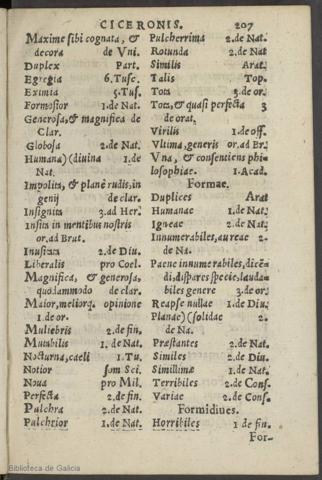 CICERONIS. 207
Maxime sibi cognata, &
decora de Vni.
Duplex Part.
Egregia 6.Tusc.
Eximia 5.Tus.
Formosior 1.de Nat.
Generosa, & magnifica de
Clar.
Globosa 2.de Nat.
Humana)(diuina 1.de
Nat.
Impolita, & planè rudis, in
genij de clar.
Insignita 3.ad Her.
Insita in mentibus nostris
or.ad Brut.
Inusitata 2.de Diu.
Liberalis pro Coel.
Magnifica, & generosa,
quodammodo de clar.
Maior, meliorq. opinione
1.de or.
Muliebris 2.de fin.
Mutabilis 1.de Nat.
Nocturna, caeli 1.Tu.
Notior som Sci.
Noua pro Mil.
Perfecta 2.de fin.
Pulchra 2.de Nat.
Pulchrior 1.de Nat.
Pulcherrima 2.de Nat.
Rotunda 2.de Nat
Similis Arat.
Talis Top.
Tota 3.de or.
Tota, & quasi perfecta 3
de orat.
Virilis 1.de off.
Vltima, generis or.ad Br.
Vna, & consentiens phi-
losophiae. 1.Acad.
Formae.
Duplices Arat
Humanae 1.de Nat.
Igneae 2.de Nat.
Innumerabiles, aureae 2.
de Na.
Paene innumerabiles, dicẽ-
di, dispares specie, lauda-
biles genere 3.de or.
Reapse nullae 1.de Diu.
Planae)(solidae 2.
de Na.
Prestantes 2.de Nat.
Similes 2.de Diu.
Simillimae 1.de Nat.
Terribiles 2.de Cons.
Variae 2.de Cons.
Formidines.
Horribiles 1 de fin.
For-
Biblioteca de Galicia